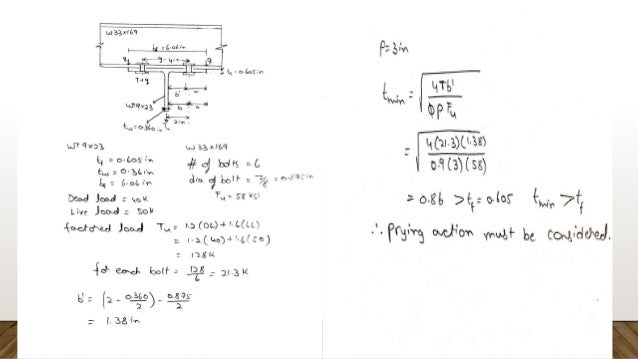 W33x169
bf = 6.06in
g = 4in
tf = 0.605in
T+q
b' a'
b a
WT9x23
2in
tw = 0.360in
WT 9x23
tf = 0.605in
tw = 0.36in
bf = 6.06in
W 33x169
# of bolts = 6
dia of bolt = 7/8 = 0.875in
Fu = 58 ksi
Dead load = 40k
Live load = 50k
factored load Tu = 1.2(DL)+1.6(LL)
= 1.2(40)+1.6(50)
= 128k
for each bolt = 128/6 = 21.3 K
b' = (2 - 0.360/2) - 0.875/2
= 1.38 in
P = 3in
tmin = √(4Tb'/ΦPFu)
= √(4(21.3)(1.38)/0.9(3)(58))
= 0.86 > tf = 0.605 tmin > tf
∴ Prying action must be considered.